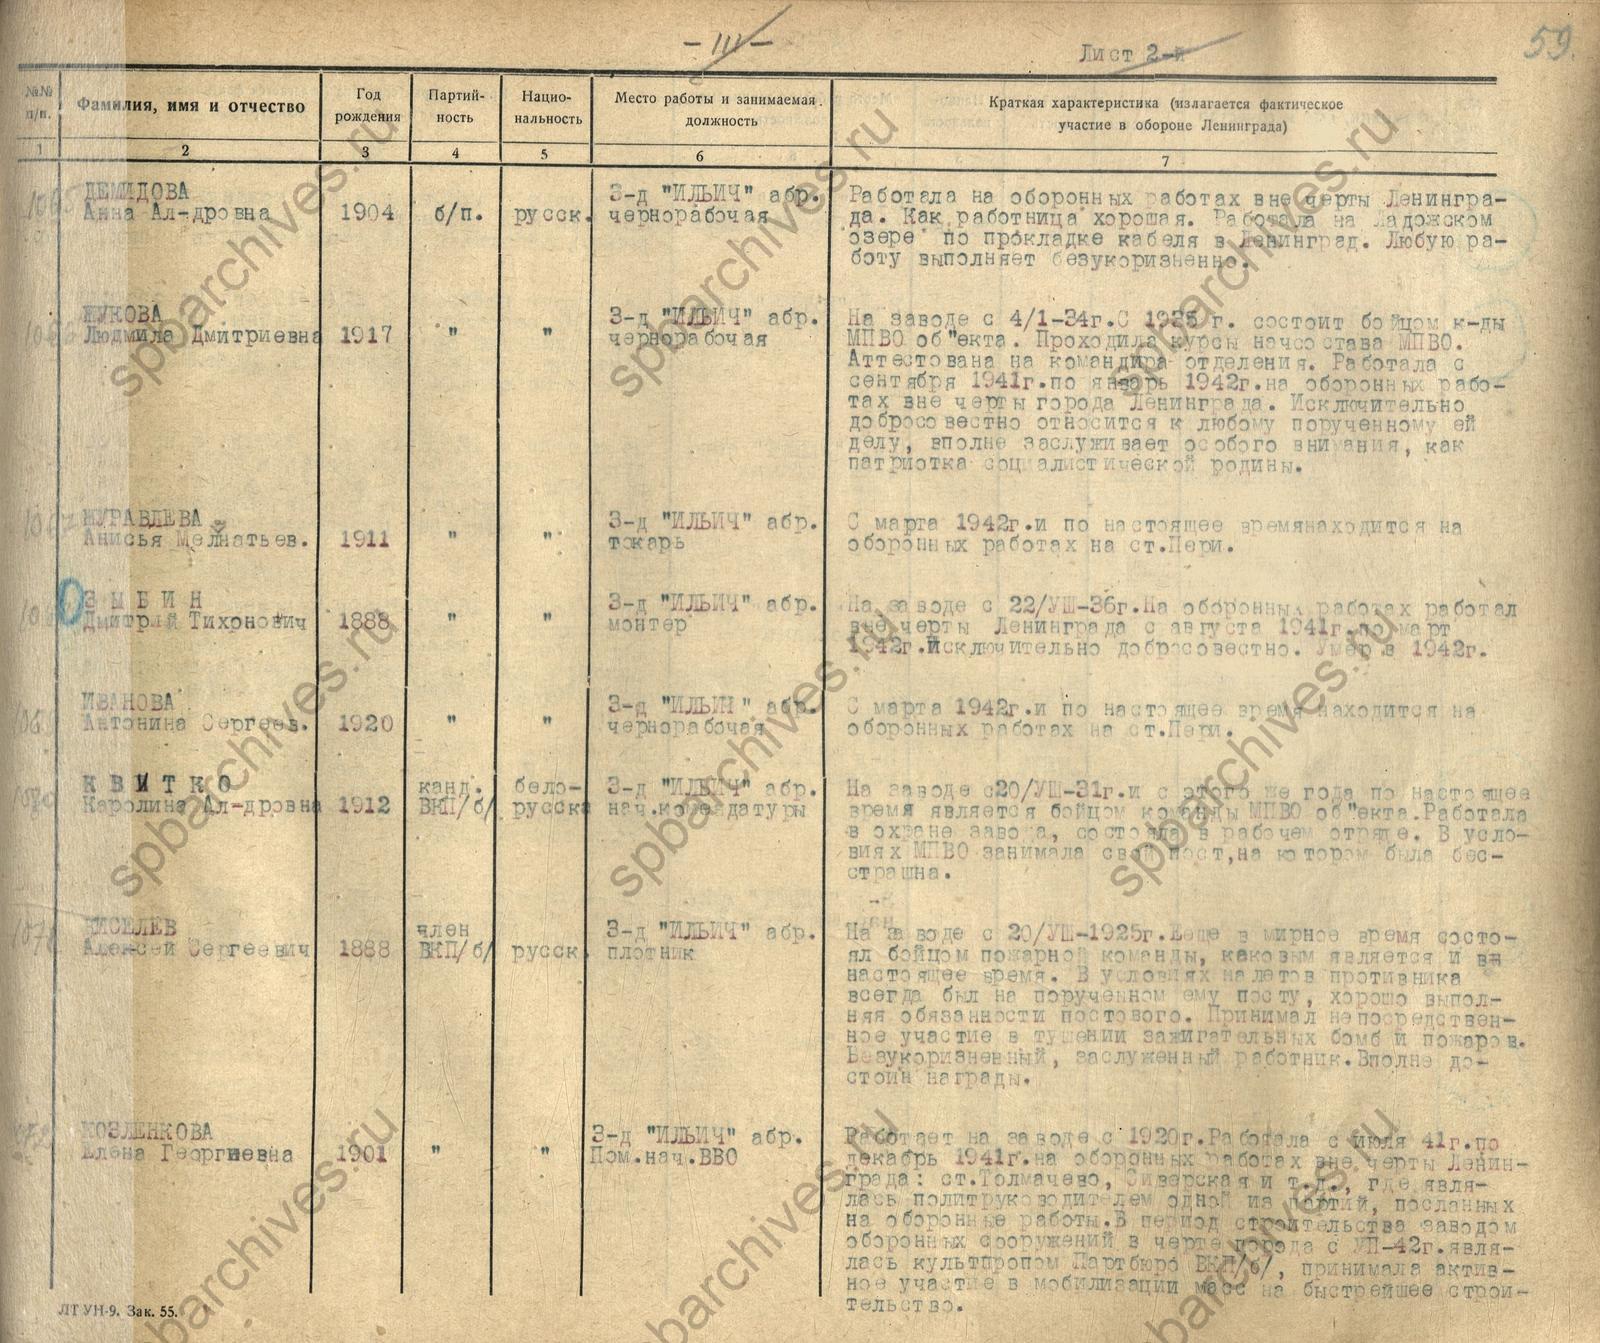 - III -
Лист 2-й
59.
№№ п/п.
Фамилия, имя и отчество
Год рождения
Партий-ность
Нацио-нальность
Место работы и занимаемая должность
Краткая характеристика (излагается фактическое участие в обороне Ленинграда)
1 2 3 4 5 6 7
ДЕМИДОВА З-д "ИЛЬИЧ" абр. Работала на оборонных работах вне черты Ленингра-
Анна Ал-дровна 1904 б/п. русск. чернорабочая да. Как работница хорошая. Работала на Ладожском
озере по прокладке кабеля в Ленинград. Любую ра-
боту выполняет безукоризненно.
ЖУКОВА З-д "ИЛЬИЧ" абр. На заводе с 4/1-34г.С 1935 г. состоит бойцом к-ды
Людмила Дмитриевна 1917 " " чернорабочая МПВО об"екта. Проходила курсы начсостава МПВО.
Аттестована на командира отделения. Работала с
сентября 1941г.по январь 1942г.на оборонных рабо-
тах вне черты города Ленинграда. Исключительно
добросовестно относится к любому порученному ей
делу, вполне заслуживает особого внимания, как
патриотка социалистической родины.
1067 ЖУРАВЛЕВА З-д "ИЛЬИЧ" абр. С марта 1942г.и по настоящее времянаходится на
Анисья Мелнатьев. 1911 " " токарь оборонных работах на ст.Пери.
ЗЫБИН З-д "ИЛЬИЧ" абр. На заводе с 22/УШ-36г.На оборонных работах работал
Дмитрий Тихонович 1888 " " монтер вне черты Ленинграда с августа 1941г.по март
1942г.Исключительно добросовестно. Умер в 1942г.
ИВАНОВА З-д "ИЛЬИЧ" абр. С марта 1942г.и по настоящее время находится на
Антонина Сергеев. 1920 " " чернорабочая оборонных работах на ст.Пери.
КВИТКО канд. бело- З-д "ИЛЬИЧ" абр. На заводе с20/УШ-31г.и с этого же года по настоящее
Каролина Ал-дровна 1912 ВКП/б/ русска нач.комендатуры время является бойцом команды МПВО об"екта.Работала
в охране завода, состояла в рабочем отряде. В усло-
виях МПВО занимала свой пост,на котором была бес-
страшна.
КИСЕЛЕВ член З-д "ИЛЬИЧ" абр. На заводе с 20/УШ-1925г.Ееще в мирное время состо-
Алексей Сергеевич 1888 ВКП/б/ русск. плотник ял бойцом пожарной команды, каковым является и в
настоящее время. В условиях налетов противника
всегда был на порученном ему посту, хорошо выпол-
няя обязанности постового. Принимал непосредствен-
ное участие в тушении зажигательных бомб и пожаров.
Безукоризненный, заслуженный работник.Вполне до-
стоин награды.
КОЗЛЕНКОВА З-д "ИЛЬИЧ" абр. Работает на заводе с 1920г.Работала с июля 41г.по
Елена Георгиевна 1901 " " Пом.нач.ВВО декабрь 1941г.на оборонных работах вне черты Ленин-
града: ст.Толмачево, Сиверская и т.д., где явля-
лась политруководителем одной из партий, посланных
на оборонные работы.В период строительства заводом
оборонных сооружений в черте города с УП-42г.явля-
лась культпропом Партбюро ВКП/б/, принимала актив-
ное участие в мобилизации масс на быстрейшее строи-
тельство.
ЛГУН-9. Зак. 55.
spbarchives.ru
spbarchives.ru
spbarchives.ru
spbarchives.ru
spbarchives.ru
spbarchives.ru
spbarchives.ru
spbarchives.ru
spbarchives.ru